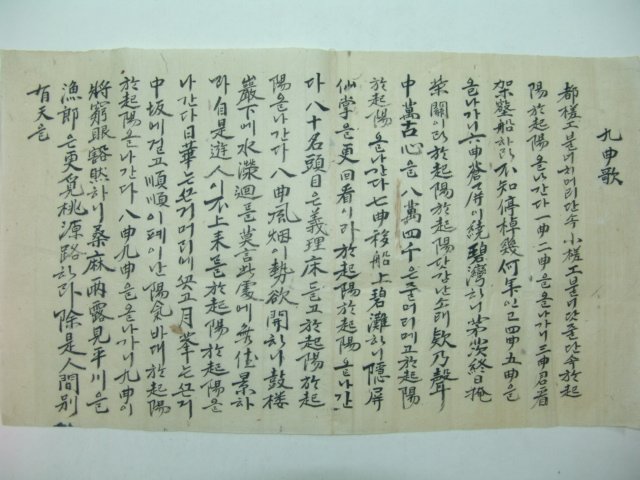 九曲歌
都槎工분네치머리단속 小槎工분네단줄단속 於起
陽於起陽올나간다 一曲二曲을올나가니 三曲君看
架壑船하라 不知停棹幾何年인고 四曲五曲을
올나가니 六曲蒼屛이繞碧灣하니 茅茨終日掩
柴關이라 於起陽於起陽단감난소래 欸乃聲
中萬古心을 八萬四千은줄머리메고 於起陽
於起陽올나간다 七曲移船上碧灘하니 隱屛
仙掌을更回看이라 於起陽於起陽올나간
다 八十名頭目은義理床듣고 於起陽於起
陽올나간다 八曲風烟이勢欲開하니 鼓樓
巖下에水瀠洄를 莫言此處에無佳景하
라 自是遊人이不上來를 於起陽於起陽올
나간다 日華는 머리에꼿고 月華는
中坂에걸고 順順이 陽氣바래 於起陽
於起陽올나간다 八曲九曲을올나가니 九曲이
將窮眼豁然하니 桑麻雨露見平川을
漁郞은更覓桃源路하라 除是人間別
有天을